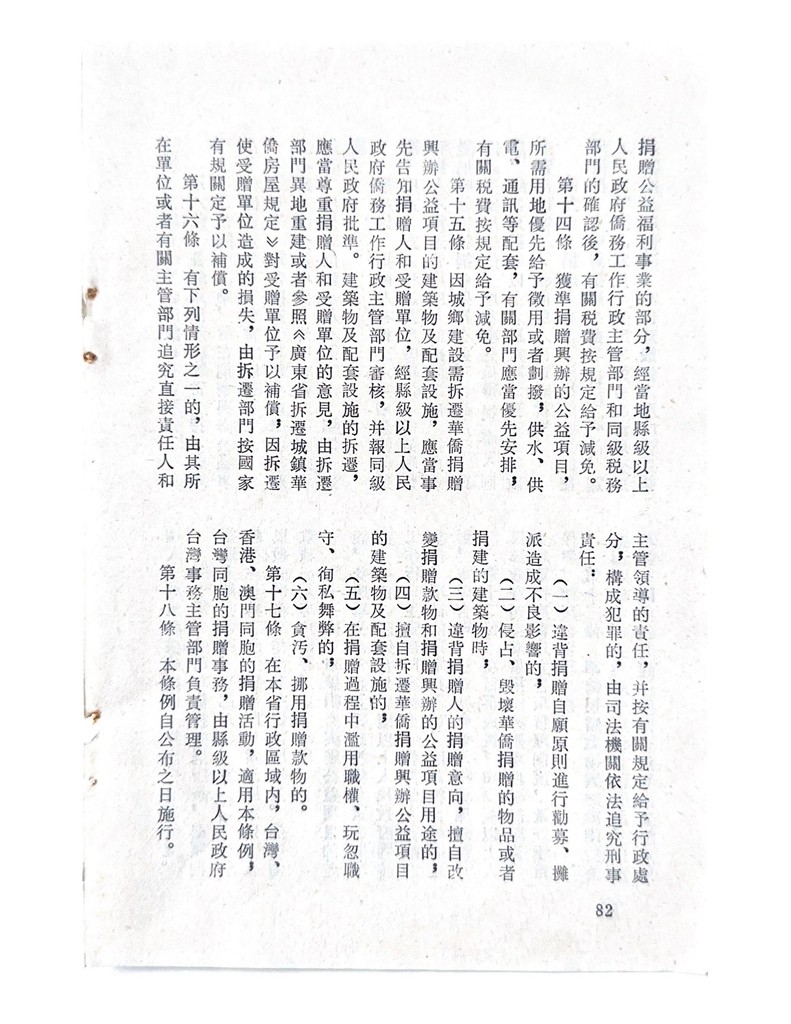 捐贈公益福利事業的部分，經當地縣級以上
人民政府僑務工作行政主管部門和同級税務
部門的確認後，有關税費按規定給予減免。
第十四條　獲準捐贈興辦的公益項目，
所需用地優先給予徵用或者劃撥；供水、供
電、通訊等配套，有關部門應當優先安排，
有關税費按規定給予減免。
第十五條　因城鄉建設需拆遷華僑捐贈
興辦公益項目的建築物及配套設施，應當事
先告知捐贈人和受贈單位，經縣級以上人民
政府僑務工作行政主管部門審核，并報同級
人民政府批準。建築物及配套設施的拆遷，
應當尊重捐贈人和受贈單位的意見，由拆遷
部門異地重建或者參照《廣東省拆遷城鎮華
僑房屋規定》對受贈單位予以補償；因拆遷
使受贈單位造成的損失，由拆遷部門按國家
有規關定予以補償。
第十六條　有下列情形之一的，由其所
在單位或者有關主管部門追究直接責任人和
主管領導的責任，并按有關規定給予行政處
分；構成犯罪的，由司法機關依法追究刑事
責任：
（一）違背捐贈自願原則進行勸募、攤
派造成不良影響的；
（二）侵占、毀壞華僑捐贈的物品或者
捐建的建築物時；
（三）違背捐贈人的捐贈意向，擅自改
變捐贈款物和捐贈興辦的公益項目用途的；
（四）擅自拆遷華僑捐贈興辦公益項目
的建築物及配套設施的；
（五）在捐贈過程中濫用職權、玩忽職
守、徇私舞弊的；
（六）貪污、挪用捐贈款物的。
第十七條　在本省行政區域内，台灣、
香港、澳門同胞的捐贈活動，適用本條例；
台灣同胞的捐贈事務，由縣級以上人民政府
台灣事務主管部門負責管理。
第十八條　本條例自公布之日施行。
82